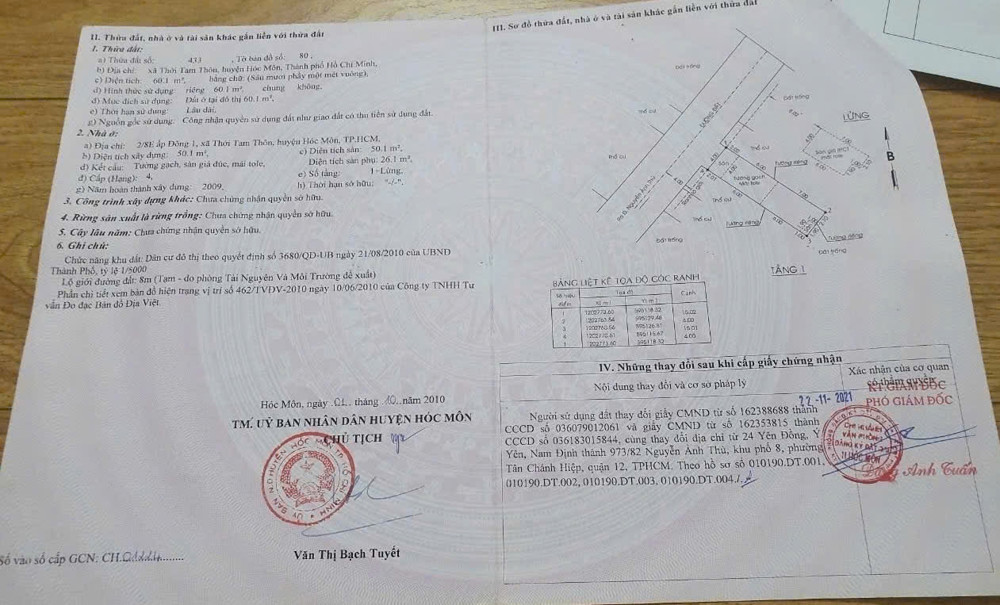 II. Thửa đất, nhà ở và tài sản khác gắn liền với thửa đất
1. Thửa đất:
a) Thửa đất số: 433 , Tờ bản đồ số: 80 ,
b) Địa chỉ: xã Thới Tam Thôn, huyện Hóc Môn, Thành phố Hồ Chí Minh,
c) Diện tích: 60.1 m², bằng chữ: (Sáu mươi phẩy một mét vuông),
d) Hình thức sử dụng: riêng 60.1 m², chung không.
đ) Mục đích sử dụng: Đất ở tại đô thị 60.1 m².
e) Thời hạn sử dụng: Lâu dài.
g) Nguồn gốc sử dụng: Công nhận quyền sử dụng đất như giao đất có thu tiền sử dụng đất.
2. Nhà ở:
a) Địa chỉ: 2/8E ấp Đông 1, xã Thới Tam Thôn, huyện Hóc Môn, TP.HCM.
b) Diện tích xây dựng: 50.1 m², c) Diện tích sàn: 50.1 m²,
d) Kết cấu: Tường gạch, sàn giả đúc, mái tole, Diện tích sàn phụ: 26.1 m².
đ) Cấp (Hạng): 4, e) Số tầng: 1+Lửng.
g) Năm hoàn thành xây dựng: 2009, h) Thời hạn sở hữu: "-/-".
3. Công trình xây dựng khác: Chưa chứng nhận quyền sở hữu.
4. Rừng sản xuất là rừng trồng: Chưa chứng nhận quyền sở hữu.
5. Cây lâu năm: Chưa chứng nhận quyền sở hữu.
6. Ghi chú:
Chức năng khu đất: Dân cư đô thị theo quyết định số 3680/QD-UB ngày 21/08/2010 của UBND
Thành Phố, tỷ lệ 1/5000
Lộ giới đường đất: 8m (Tạm - do phòng Tài Nguyên Và Môi Trường đề xuất)
Phần chi tiết xem bản đồ hiện trạng vị trí số 462/TVĐV-2010 ngày 10/06/2010 của Công ty TNHH Tư
vấn Đo đạc Bản đồ Địa Việt.
Hóc Môn, ngày 01 tháng 10 năm 2010
TM. UỶ BAN NHÂN DÂN HUYỆN HÓC MÔN
CHỦ TỊCH
Văn Thị Bạch Tuyết
Số vào sổ cấp GCN: CH
III. Sơ đồ thửa đất, nhà ở và tài sản khác gắn liền với thửa đất
Đất trống
Đất trống
LỬNG
ĐƯỜNG ĐẤT
Thổ cư
Thổ cư
Thổ cư
B
Thổ cư
Thổ cư
Đất trống
Đất trống
TẦNG 1
BẢNG LIỆT KÊ TỌA ĐỘ GÓC RANH
Số hiệu điểm Tọa độ Cạnh
X( m ) Y( m )
IV. Những thay đổi sau khi cấp giấy chứng nhận
Nội dung thay đổi và cơ sở pháp lý
Xác nhận của cơ quan
có thẩm quyền
22-11-2021
KT.GIÁM ĐỐC
PHÓ GIÁM ĐỐC
Người sử dụng đất thay đổi giấy CMND từ số 162388688 thành
CCCD số 036079012061 và giấy CMND từ số 162353815 thành
CCCD số 036183015844, cùng thay đổi địa chỉ từ 24 Yên Đồng, Ý
Yên, Nam Định thành 973/82 Nguyễn Ảnh Thủ, khu phố 8, phường
Tân Chánh Hiệp, quận 12, TPHCM. Theo hồ sơ số 010190.DT.001,
010190.DT.002, 010190.DT.003, 010190.DT.004./.
CHI NHÁNH
VĂN PHÒNG
ĐĂNG KÝ ĐẤT ĐAI
H.HÓC MÔN
Anh Tuấn